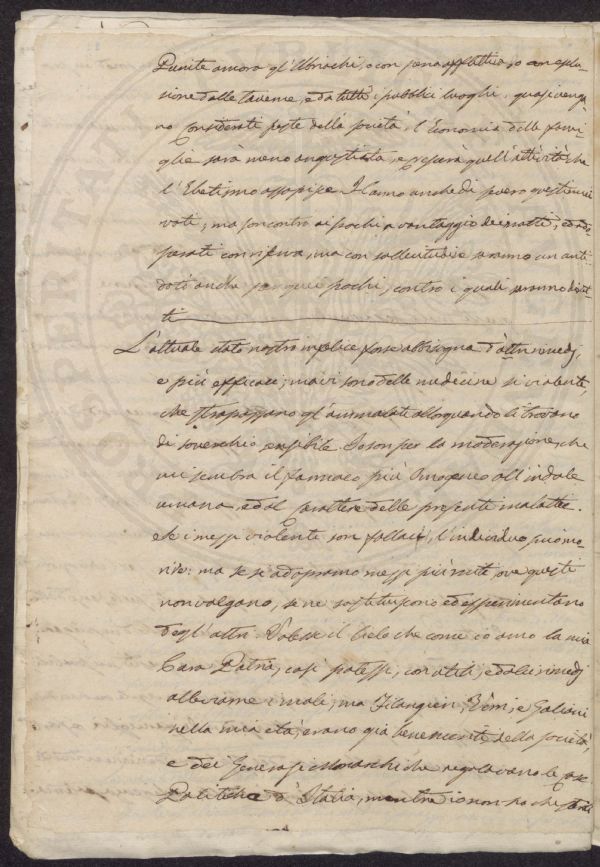 Punite ancora gl'Ubriachi, o con pena afflittiva, o con espul-
sione dalle taverne, e da tutti i pubblici luoghi, quasi venga
no considerati peste della società, l'Economia delle fami-
glie sarà meno angustiata, e cesserà quell'attività che
l'Ebetismo assopisce. Hanno anche di
voti; ma son contro ai pochi a vantaggio dei molti, ed ado
perati con riserva, ma con sollecitudine saranno un anti
doto anche per quei pochi, contro i quali saranno diret-
ti
L'attuale stato nostro infelice forse abbisogna d'altri rimedj,
e più efficaci; ma vi sono delle medicine sì violenti,
che strapazzano gl'ammalati allorquando li trovano
di soverchio sensibile. Io son per la moderazione, che
mi sembra il farmaco più omogeneo all'indole
umana, ed al carattere delle presenti malattie.
Se i mezzi violenti son fallaci, l'individuo può mo-
rire: ma se si adoprano mezzi più miti, ove questi
non valgano, se ne sostituiscono ed esperimentano
degl'altri. Volesse il Cielo che come io amo la mia
Cara Patria, così potessi, con utili, e dolci rimedj
alleviarne i mali; ma Filangieri, Verri, e Galiani
nella mia età, erano già benemeriti della società,
e dei Generosi Monarchi che regolavano le cose
Politiche d'Italia, mentre io non so che